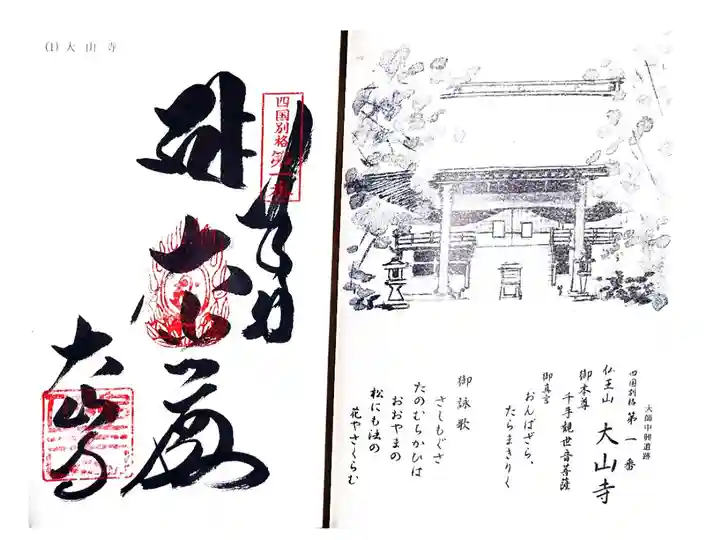 大師中興遺跡
四国別格 第一番
仏王山 大山寺
御本尊
千手観世音菩薩
御真言
おんばざら、
たらまきりく
御詠歌
さしもぐさ
たのむちかひは
おおやまの
松にも法の
花やさくらむ
(1) 大山寺
四国別格第一番
大山寺